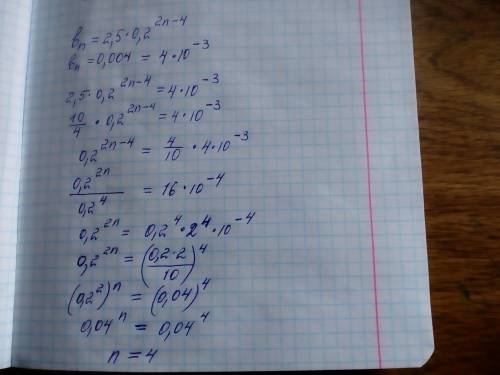 bₙ = 2,5·0,2^(2n-4)
bₙ = 0,004 = 4·10^(-3)
2,5·0,2^(2n-4) = 4·10^(-3)
10/4 · 0,2^(2n-4) = 4·10^(-3)
0,2^(2n-4) = 4/10 · 4·10^(-3)
0,2^(2n) / 0,2^4 = 16·10^(-4)
0,2^(2n) = 0,2^4 · 2^4 · 10^(-4)
0,2^(2n) = (0,2·2 / 10)^4
(0,2^2)^n = (0,04)^4
0,04^n = 0,04^4
n = 4